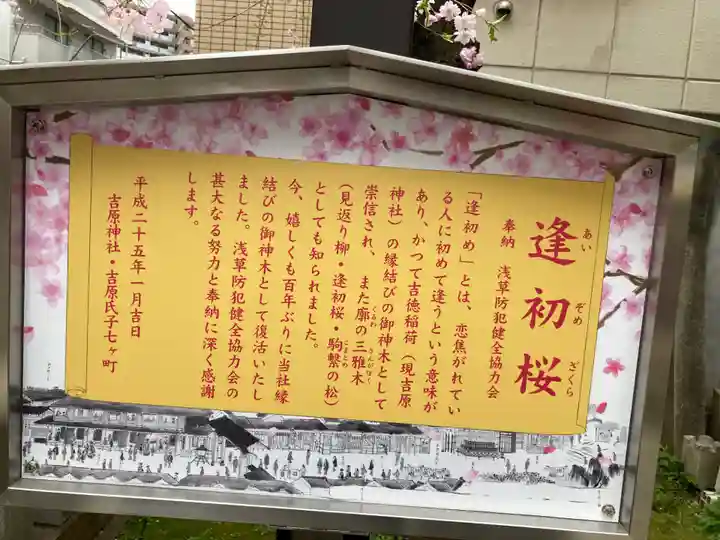 逢初桜
あい ぞめ ざくら
奉納 浅草防犯健全協力会
「逢初め」とは、恋焦がれてい
る人に初めて逢うという意味が
あり、かつて吉徳稲荷(現吉原
神社)の縁結びの御神木として
崇信され、また廓の三雅木
くるわ さんがぼく
(見返り柳・逢初桜・駒繋の松)
こまとめ
としても知られました。
今、嬉しくも百年ぶりに当社縁
結びの御神木として復活いたし
ました。浅草防犯健全協力会の
甚大なる努力と奉納に深く感謝
します。
平成二十五年一月吉日
吉原神社・吉原氏子七ヶ町